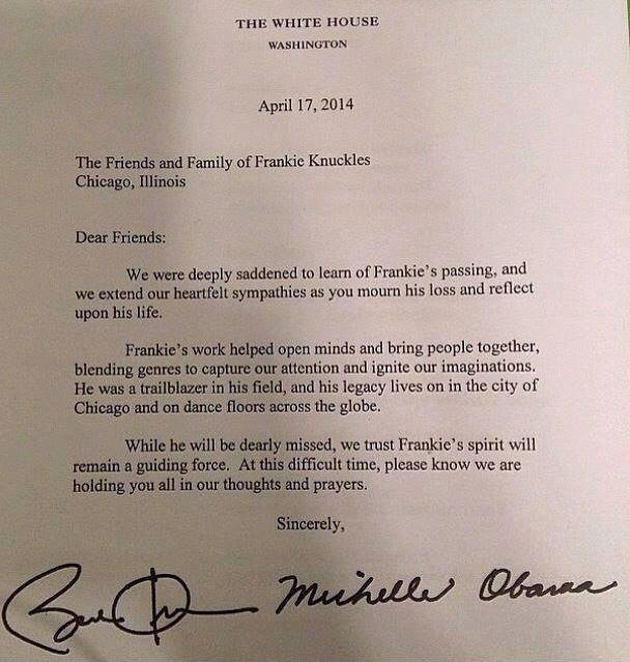 THE WHITE HOUSE
WASHINGTON
April 17, 2014
The Friends and Family of Frankie Knuckles
Chicago, Illinois
Dear Friends:
We were deeply saddened to learn of Frankie's passing, and
we extend our heartfelt sympathies as you mourn his loss and reflect
upon his life.
Frankie's work helped open minds and bring people together,
blending genres to capture our attention and ignite our imaginations.
He was a trailblazer in his field, and his legacy lives on in the city of
Chicago and on dance floors across the globe.
While he will be dearly missed, we trust Frankie's spirit will
remain a guiding force. At this difficult time, please know we are
holding you all in our thoughts and prayers.
Sincerely,
Michelle Obama